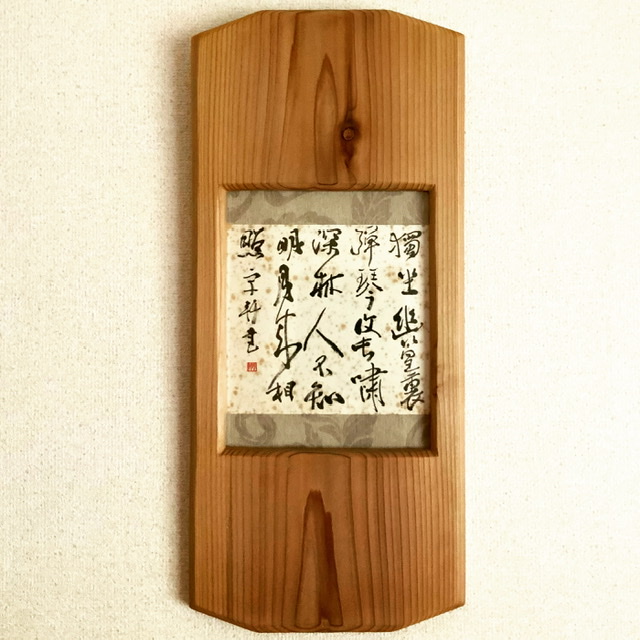 獨坐幽篁裏
彈琴復長嘯
深林人不知
明月来相
照 書